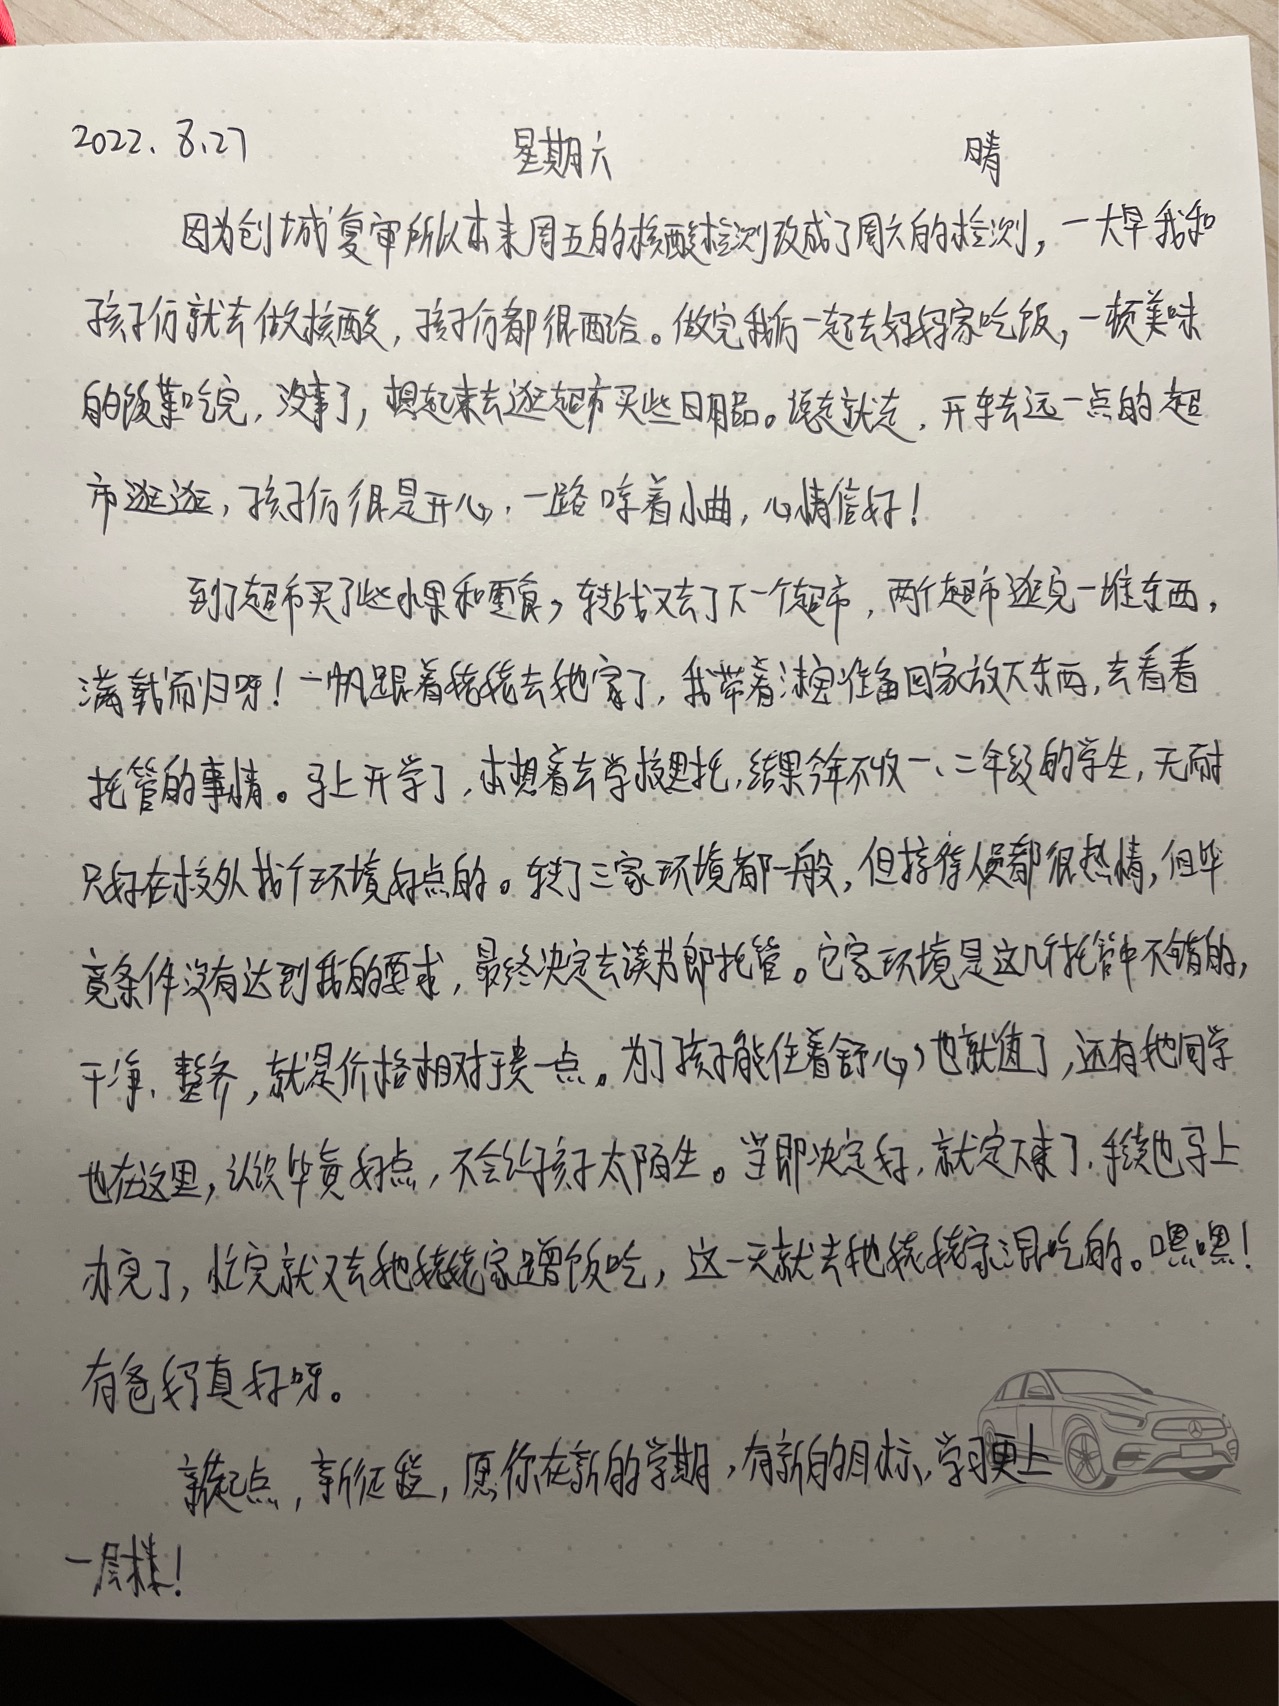 2022.8.27 星期六 晴
因为创城复审所以本来周五的核酸检测改成了周六的检测，一大早我和
孩子们就去做核酸，孩子们都很配合。做完我们一起去妈妈家吃饭，一顿美味
的饭菜吃完，没事了，想起来去逛超市买些日用品。说走就走，开车去远一点的超
市逛逛，孩子们很是开心，一路哼着小曲，心情倍好！
到了超市买了些水果和零食，转战又去了下一个超市，两个超市逛完一堆东西，
满载而归呀！一帆跟着姥姥去她家了，我带着准备回家放下东西，去看看
托管的事情。马上开学了，本想着去学校里托，结果今年不收一、二年级的学生，无耐
只好在校外找个环境好点的。转了三家环境都一般，但接待人员都很热情，但毕
竟条件没有达到我的要求，最终决定去读为郎托管。它家环境是这几个托管中不错的，
干净、整齐，就是价格相对于贵一点。为了孩子能住着舒心，也就值了，还有她同学
也在这里，认识毕竟好点，不会给孩子太陌生。当即决定好，就定下来了，手续也马上
办完了，忙完就又去她姥姥家蹭饭吃，这一天就去她姥姥家混吃的。嘿嘿！
有爸妈真好呀。
新起点，新征程，愿你在新的学期，有新的目标，学习更上
一层楼！